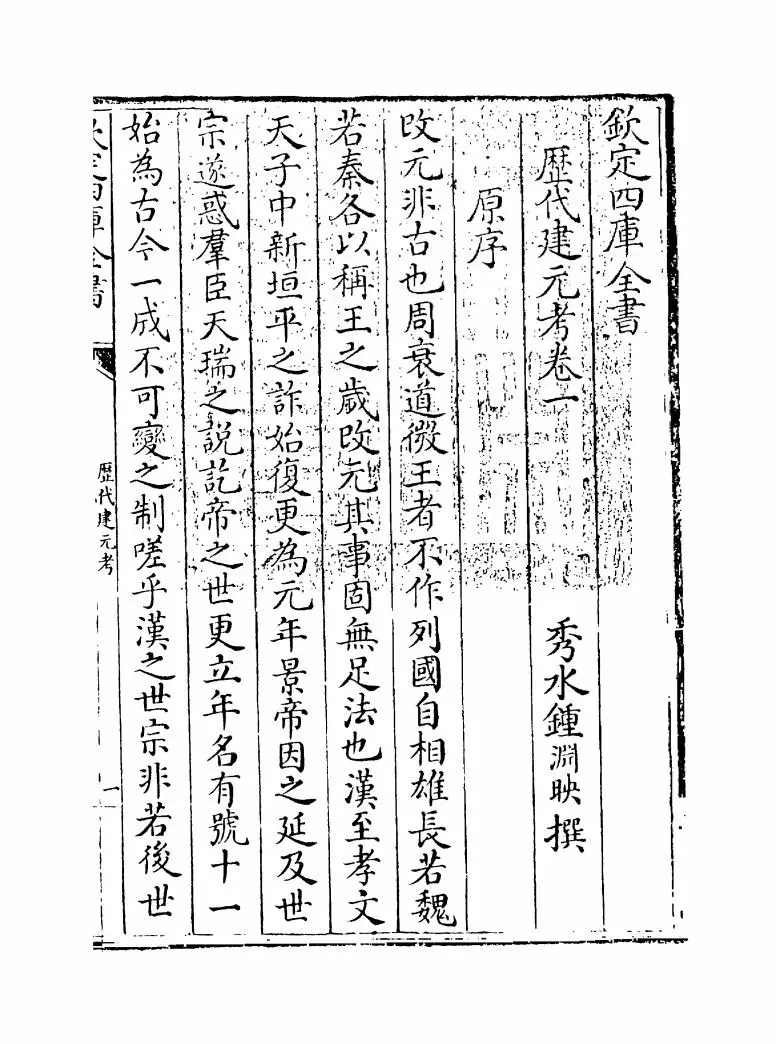 欽定四庫全書
歴代建元考卷一
秀水鍾淵映撰
原序
改元非古也周衰道微王者不作列國自相雄長若魏
若秦各以稱王之歲改元其事固無足法也漢至孝文
天子中新垣平之詐始復更為元年景帝因之延及世
宗遂惑羣臣天瑞之説訖帝之世更立年名有號十一
始為古今一成不可變之制嗟乎漢之世宗非若後世
欽定四庫全書
歴代建元考
一